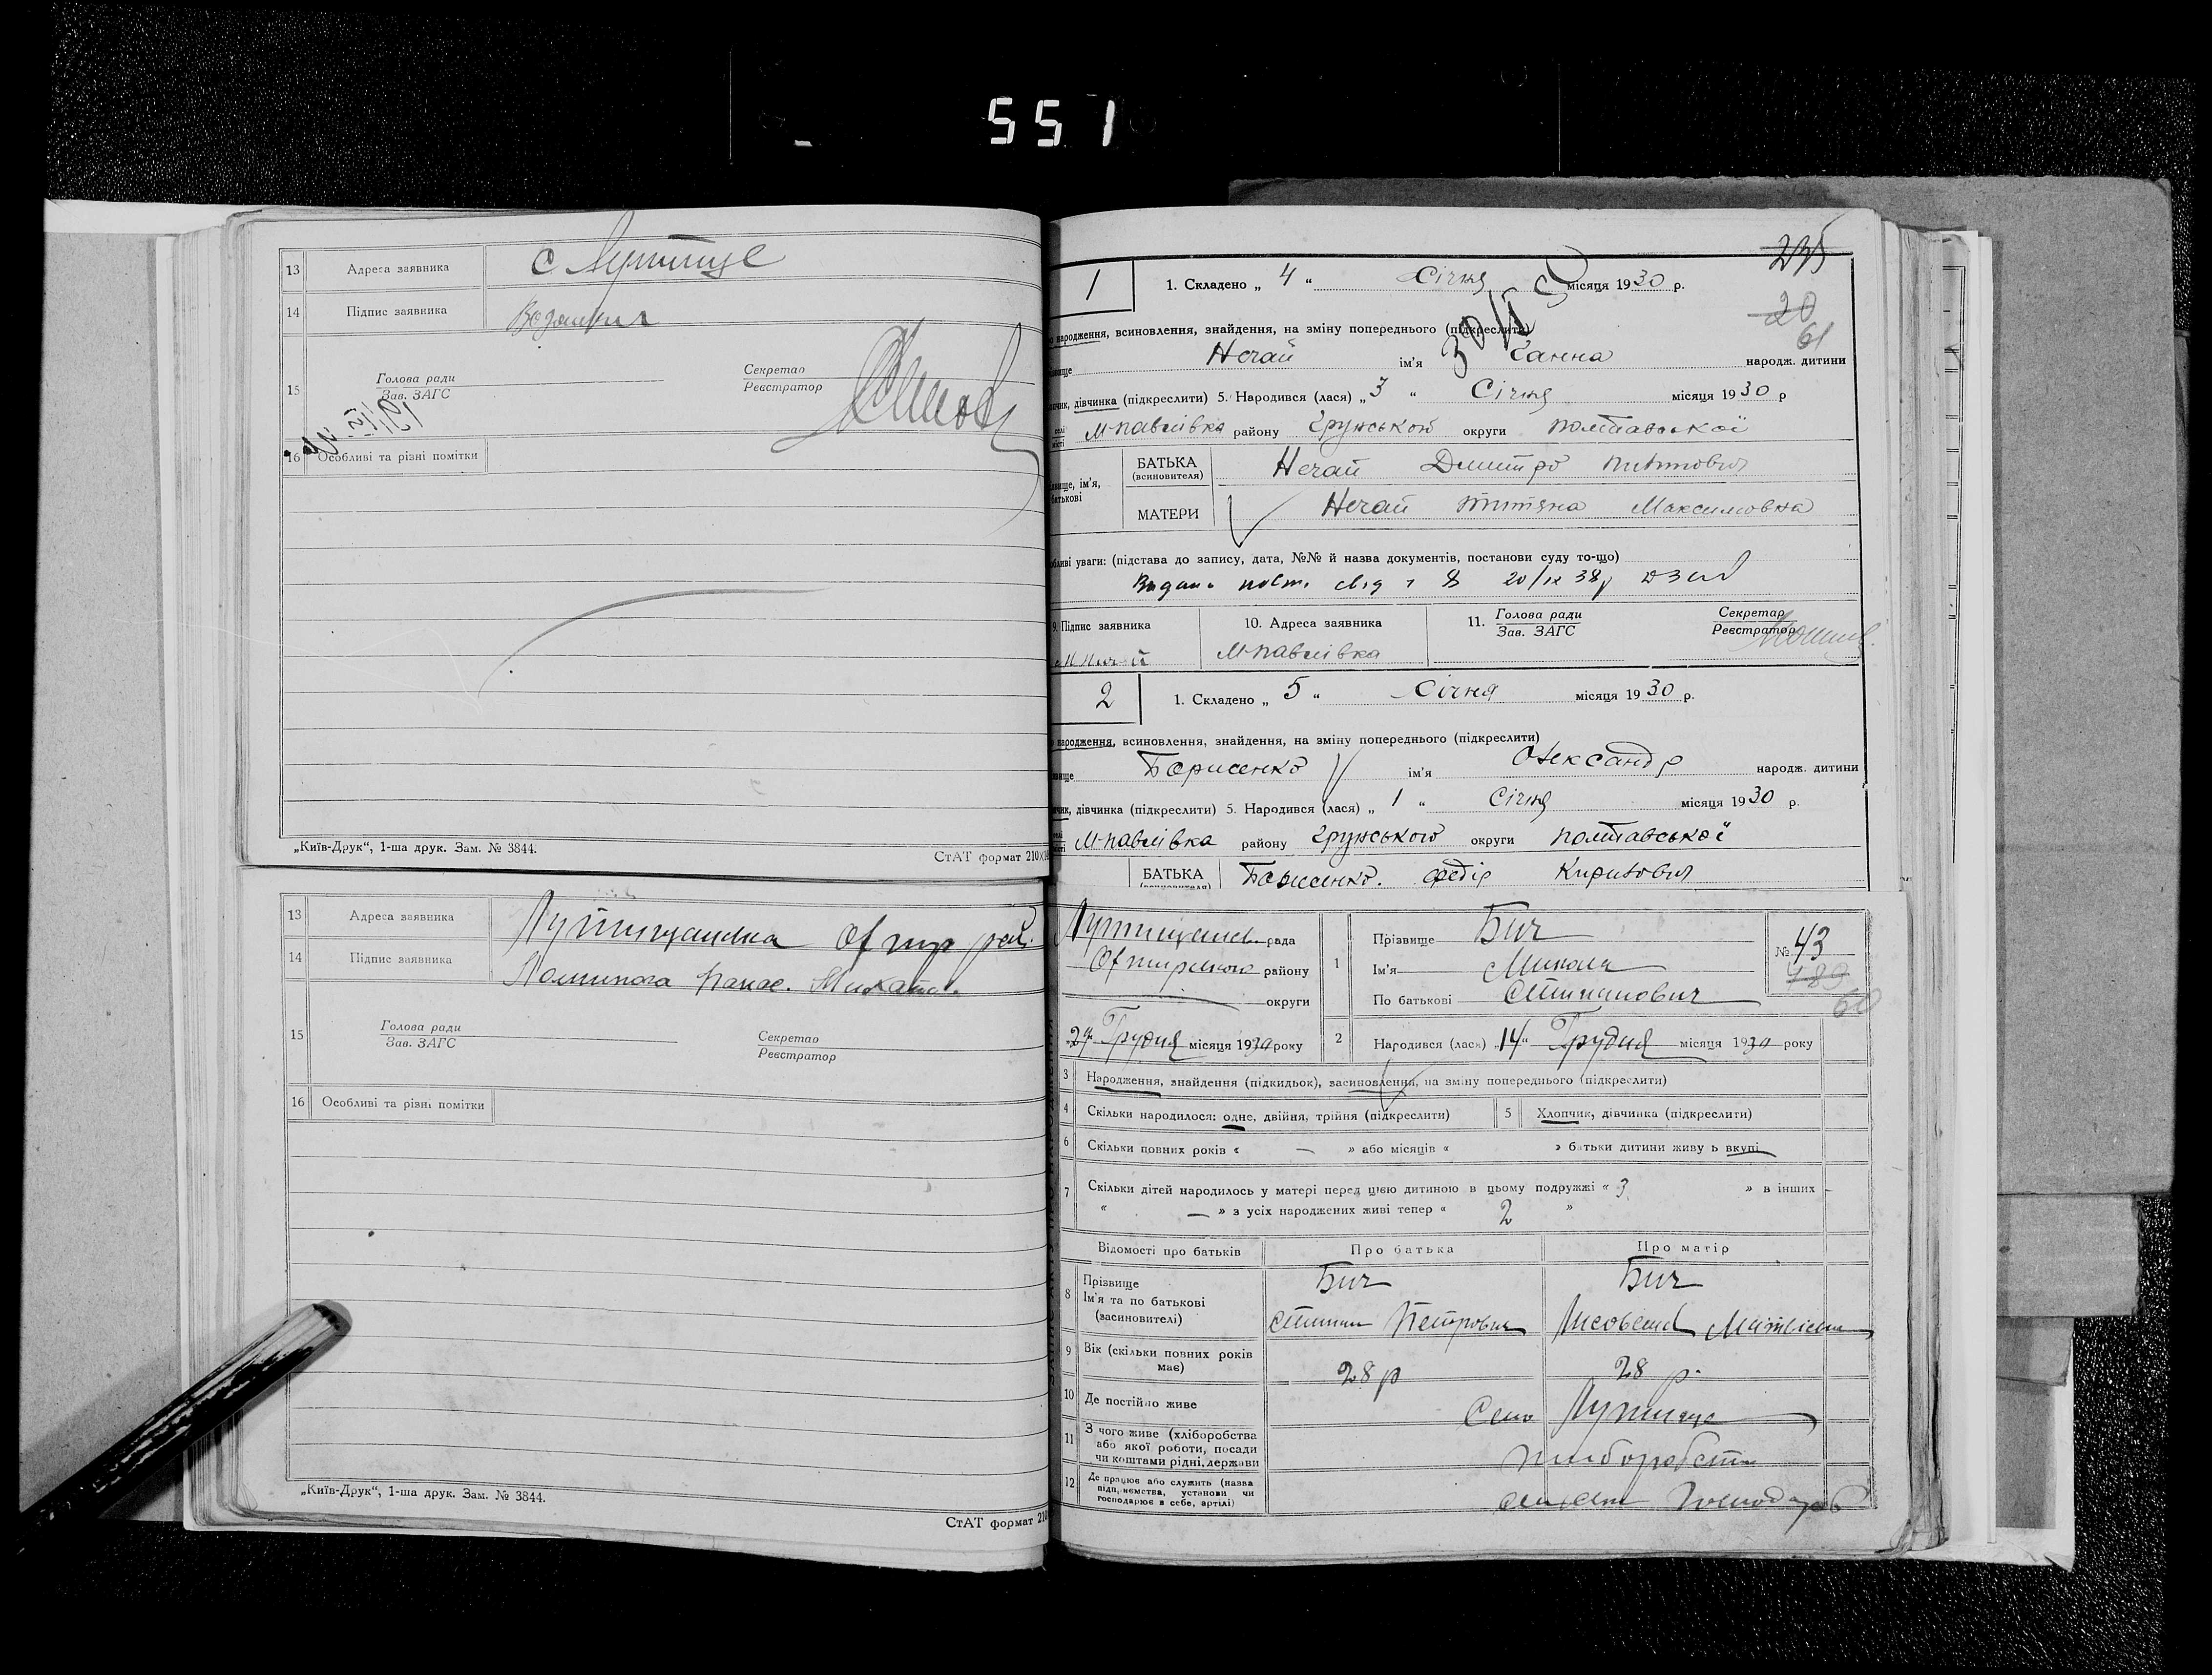 551
13 Адреса заявника с Лутище
14 Підпис заявника
15 Голова ради
Зав. ЗАГС
Секретар
Реєстратор
16 Особливі та різні помітки
„Київ-Друк“, 1-ша друк. Зам. № 3844.
СтАТ формат 210
13 Адреса заявника Лутищанська рай.
14 Підпис заявника Панас.
15 Голова ради
Зав. ЗАГС
Секретар
Реєстратор
16 Особливі та різні помітки
„Київ-Друк“, 1-ша друк. Зам. № 3844.
СтАТ формат 210
235
20
61
1
1. Складено „ 4 “ Січня місяця 1930 р.
народження, всиновлення, знайдення, на зміну попереднього (підкреслити)
Нечай ім'я Ганна народж. дитини
дівчинка (підкреслити) 5. Народився (лася) „ 3 “ Січня місяця 1930 р
М-павлівка району Грунського округи полтавської
ім'я,
батькові
БАТЬКА
(всиновителя)
Нечай Дмитро
МАТЕРИ
Нечай Максимовна
уваги: (підстава до запису, дата, №№ й назва документів, постанови суду то-що)
20/IX 38р
9. Підпис заявника
10. Адреса заявника
М-павлівка
11. Голова ради
Зав. ЗАГС
Секретар
Реєстратор
2
1. Складено „ 5 “ Січня місяця 1930 р.
народження, всиновлення, знайдення, на зміну попереднього (підкреслити)
Борисенко ім'я Олександр народж. дитини
дівчинка (підкреслити) 5. Народився (лася) „ 1 “ Січня місяця 1930 р.
М-павлівка району Грунського округи полтавської
БАТЬКА Борисенко Федір Кирилович
рада
району
округи
1
Прізвище Бич
Ім'я Микола
По батькові Степанович
№ 43
60
Грудня місяця 1930 року
2 Народився (лася) „14“ Грудня місяця 1930 року
3 Народження, знайдення (підкидьок), засиновлення, на зміну попереднього (підкреслити)
4 Скільки народилося: одне, двійня, трійня (підкреслити)
5 Хлопчик, дівчинка (підкреслити)
6 Скільки повних років « — » або місяців « » батьки дитини живуть вкупі
7 Скільки дітей народилось у матері перед цією дитиною в цьому подружжі « 3 » в інших
« — » з усіх народжених живі тепер « 2 »
Відомості про батьків Про батька Про матір
8 Прізвище
Ім'я та по батькові
(засиновителі)
Бич
Петрович
Бич
9 Вік (скільки повних років
має)
28 р
28 р.
10 Де постійно живе
Село Лутище
11 З чого живе (хліборобства
або якої роботи, посади
чи коштами рідні, держави
12 Де працює або служить (назва
підприємства, установи чи
господарює в себе, артілі)